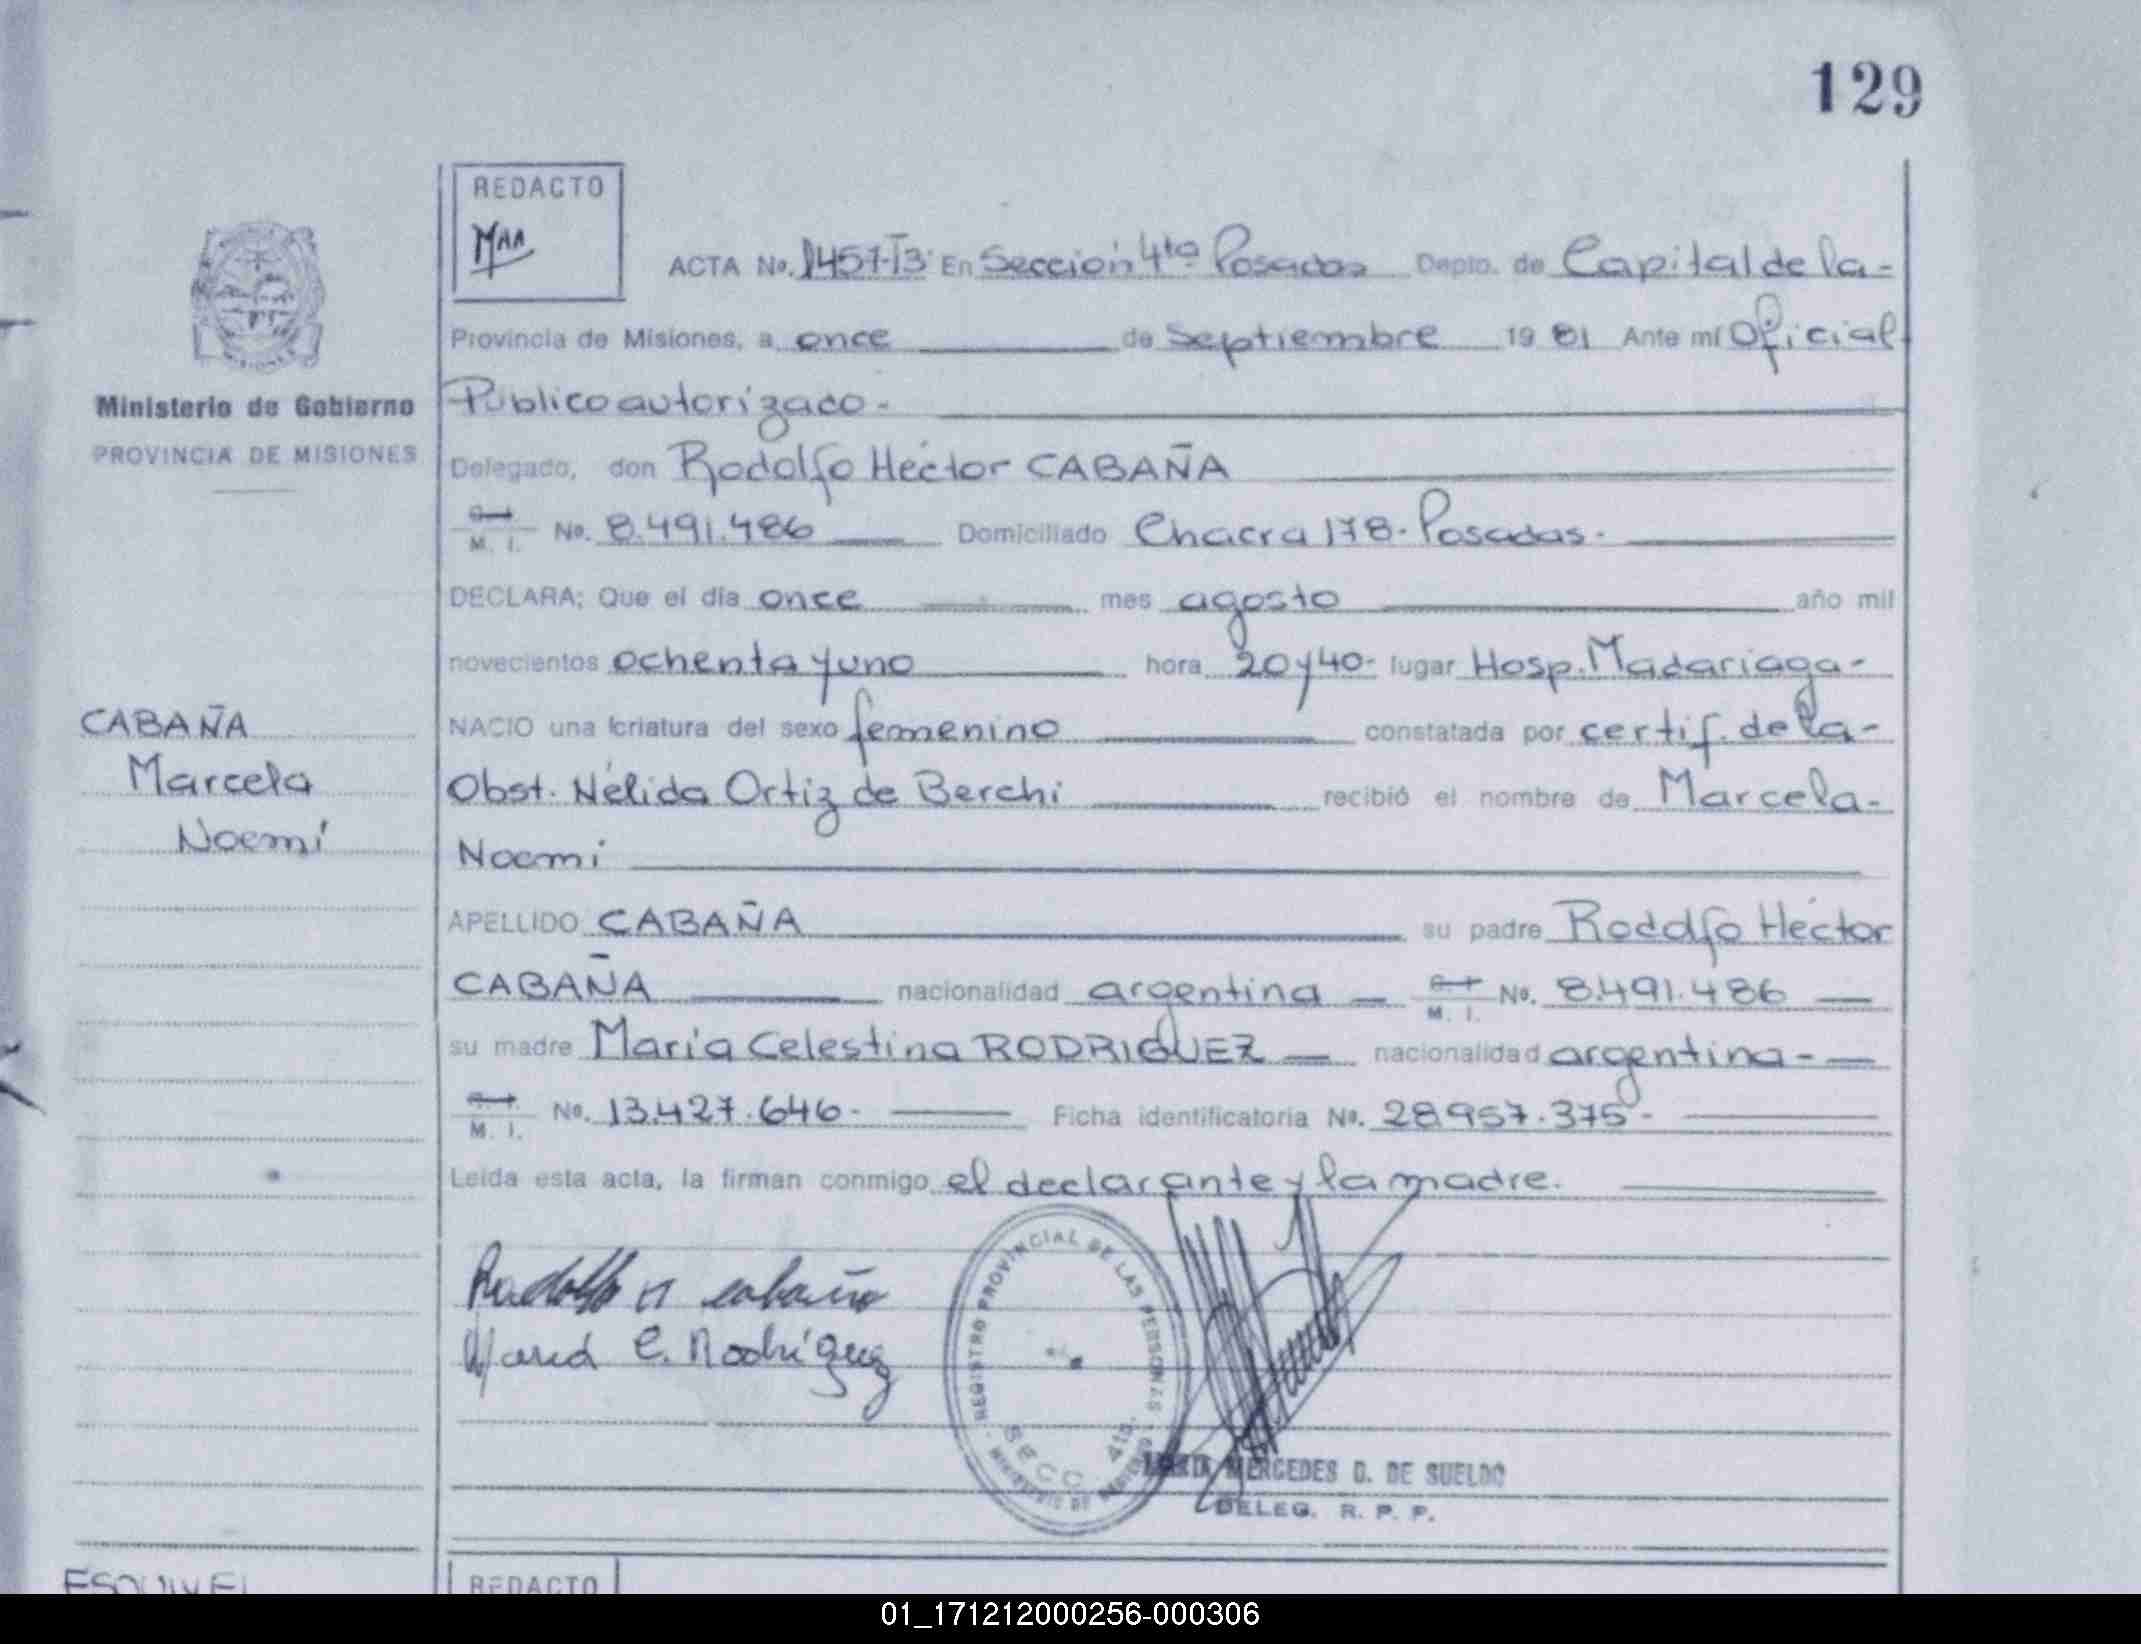 129
REDACTO
ACTA No. 1457-T3 En Sección 4ta Posadas Depto. de Capital de la-
Provincia de Misiones, a once de septiembre 19 81 Ante mí Oficial
Publico autorizado-
Ministerio de Gobierno
PROVINCIA DE MISIONES
Delegado, don Rodolfo Héctor CABAÑA
M. I. No. 8.491.486 Domiciliado Chacra 178. Posadas.
DECLARA; Que el día once mes agosto año mil
novecientos ochenta y uno hora 20 y 40- lugar Hosp. Madariaga-
CABAÑA
Marcela
Noemí
NACIO una criatura del sexo femenino constatada por certif. de la-
Obst. Nélida Ortiz de Berchi recibió el nombre de Marcela-
Noemí
APELLIDO CABAÑA su padre Rodolfo Héctor
CABAÑA nacionalidad argentina M. I. No. 8.491.486
su madre María Celestina RODRIGUEZ nacionalidad argentina-
M. I. No. 13.427.646- Ficha identificatoria No. 28.957.375-
Leída esta acta, la firman conmigo el declarante y la madre.
Rodolfo H cabaña
María C. Rodríguez
REGISTRO PROVINCIAL DE LAS PERSONAS
SECC. 4ta.
MERCEDES D. DE SUELDO
DELEG. R. P. P.
ESQUIVEL
REDACTO
01_171212000256-000306